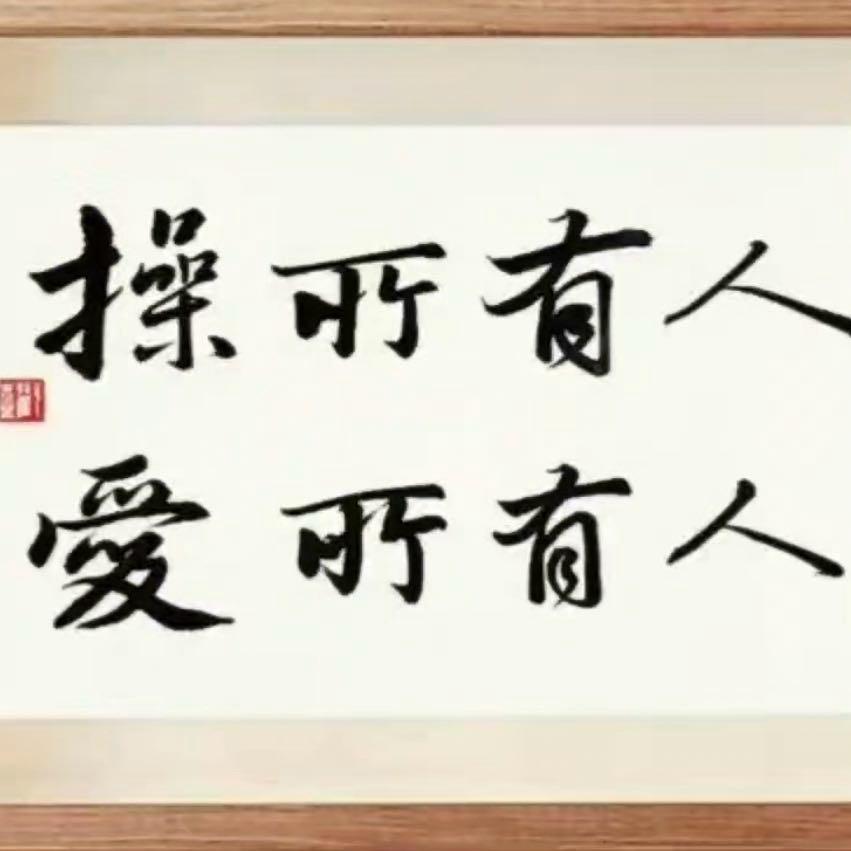 操所有人
愛所有人